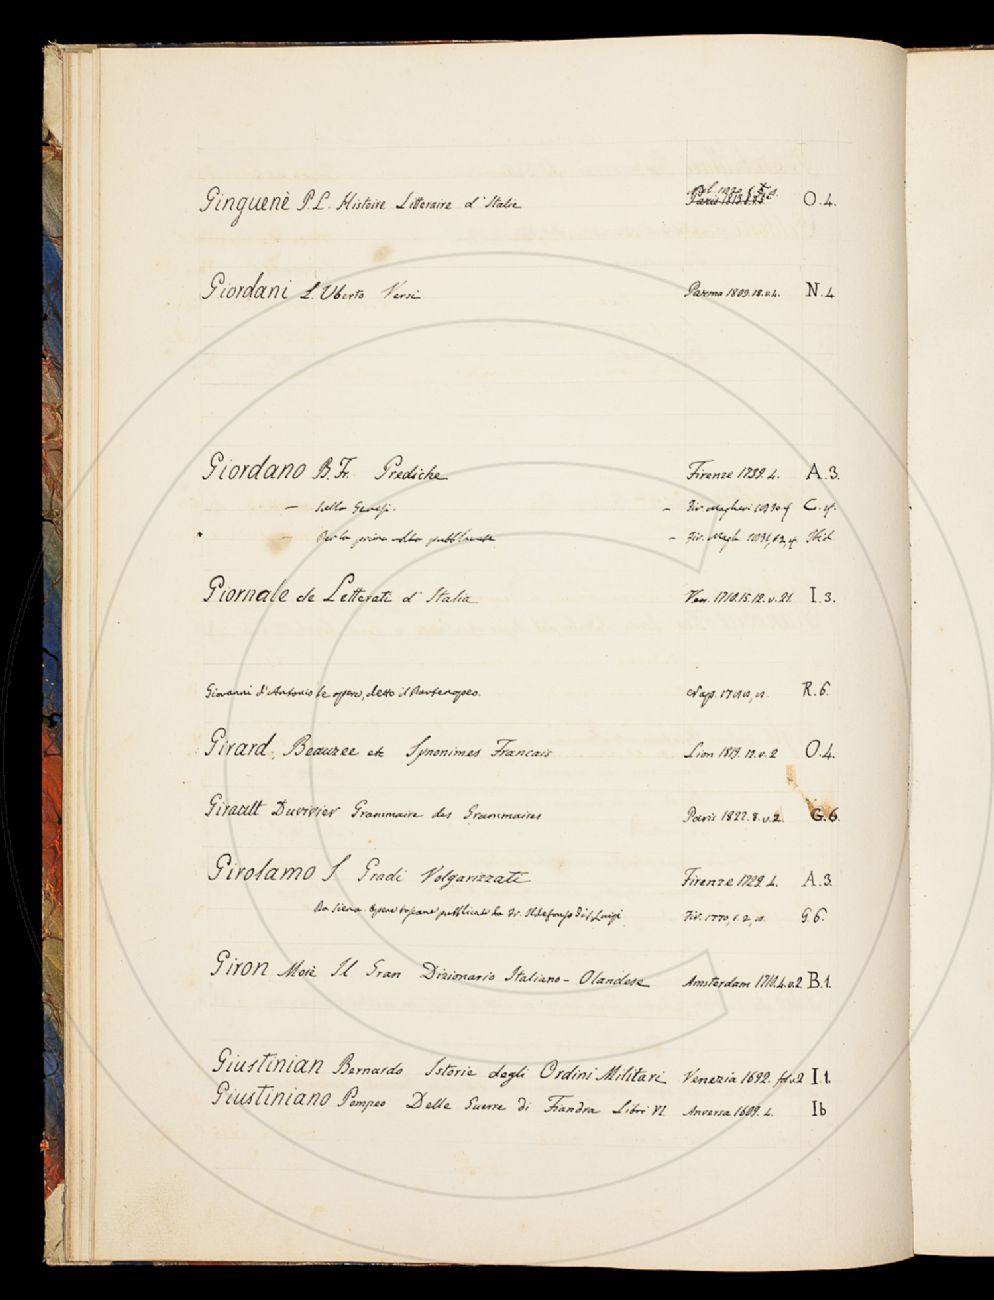 Ginguenè P.L. Histoire Litteraire d'Italie O.4.
Giordani L. Uberto Versi Parma 1809.18.v.4. N.4
Giordano B. Fr. Prediche Firenze 1739 4. A.3.
— Sulla Genesi. — Fir. Magheri 1830 C.
Per la prima volta pubblicate — Fir. Magh.
Giornale de Letterati d'Italia Ven. 1710.15.12.v.21. I.3.
Giovanni d'Antonio le opere, detto il Partenopeo. Nap. R.6.
Girard, Beauzee etc Synonimes Francais Lion 1819.12.v.2 O.4.
Girault Duvivier Grammaire des Grammaires Paris 1822.8.v.2. G.6.
Girolamo S Gradi Volgarizzati Firenze 1729 4. A.3.
Da Siena. Opere toscane pubblicate da Fr. Ildefonso di S. Luigi Fir. 1770, G.6.
Giron Mosè Il Gran Dizionario Italiano-Olandese Amsterdam 1710.4.v.2. B.1.
Giustinian Bernardo Istorie degli Ordini Militari Venezia 1692. fol.v.2 I.1.
Giustiniano Pompeo Delle Guerre di Fiandra Libri VI Anversa 1609. 4. Ib